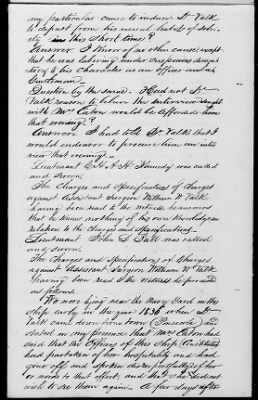 any particular cause to induce Dr Falk
to depart from his usual habit of sobri-
ety in this short time?
Answer I know of no other cause except
that he was laboring under suspicions deroga-
tory to his character as an officer and a
Gentleman
Question by the same. Had not Dr
Falk reason to believe the interview sought
with Mrs Eaton would be afforded him
that evening?
Answer I had told Dr Falk that I
would endeavor to procure him an inter
view that evening.
Lieutenant E. H. Kennedy was called
and sworn
The Charges and Specifications of Charges
against Assistant Surgeon William W Falk
having been read to the witness he answered
that he knew nothing of his own knowledge in
relation to the charges and specifications.
Lieutenant John S was called
and sworn
The Charges and Specifications of Charges
against Assistant Surgeon William W Falk
having been read to the witness he proceeded
as follows
We were lying near the Navy Yard in this
ship early in the year 1836 when Dr
Falk came down from town (Pensacola) and
stated in my presence that Mrs Eaton had
said that the Officers of this Ship (Constitution)
had partaken of her hospitality and had
gone off and spoken disrespectfully of her
or words to that effect, and that she did not
wish to see them again. A few days after